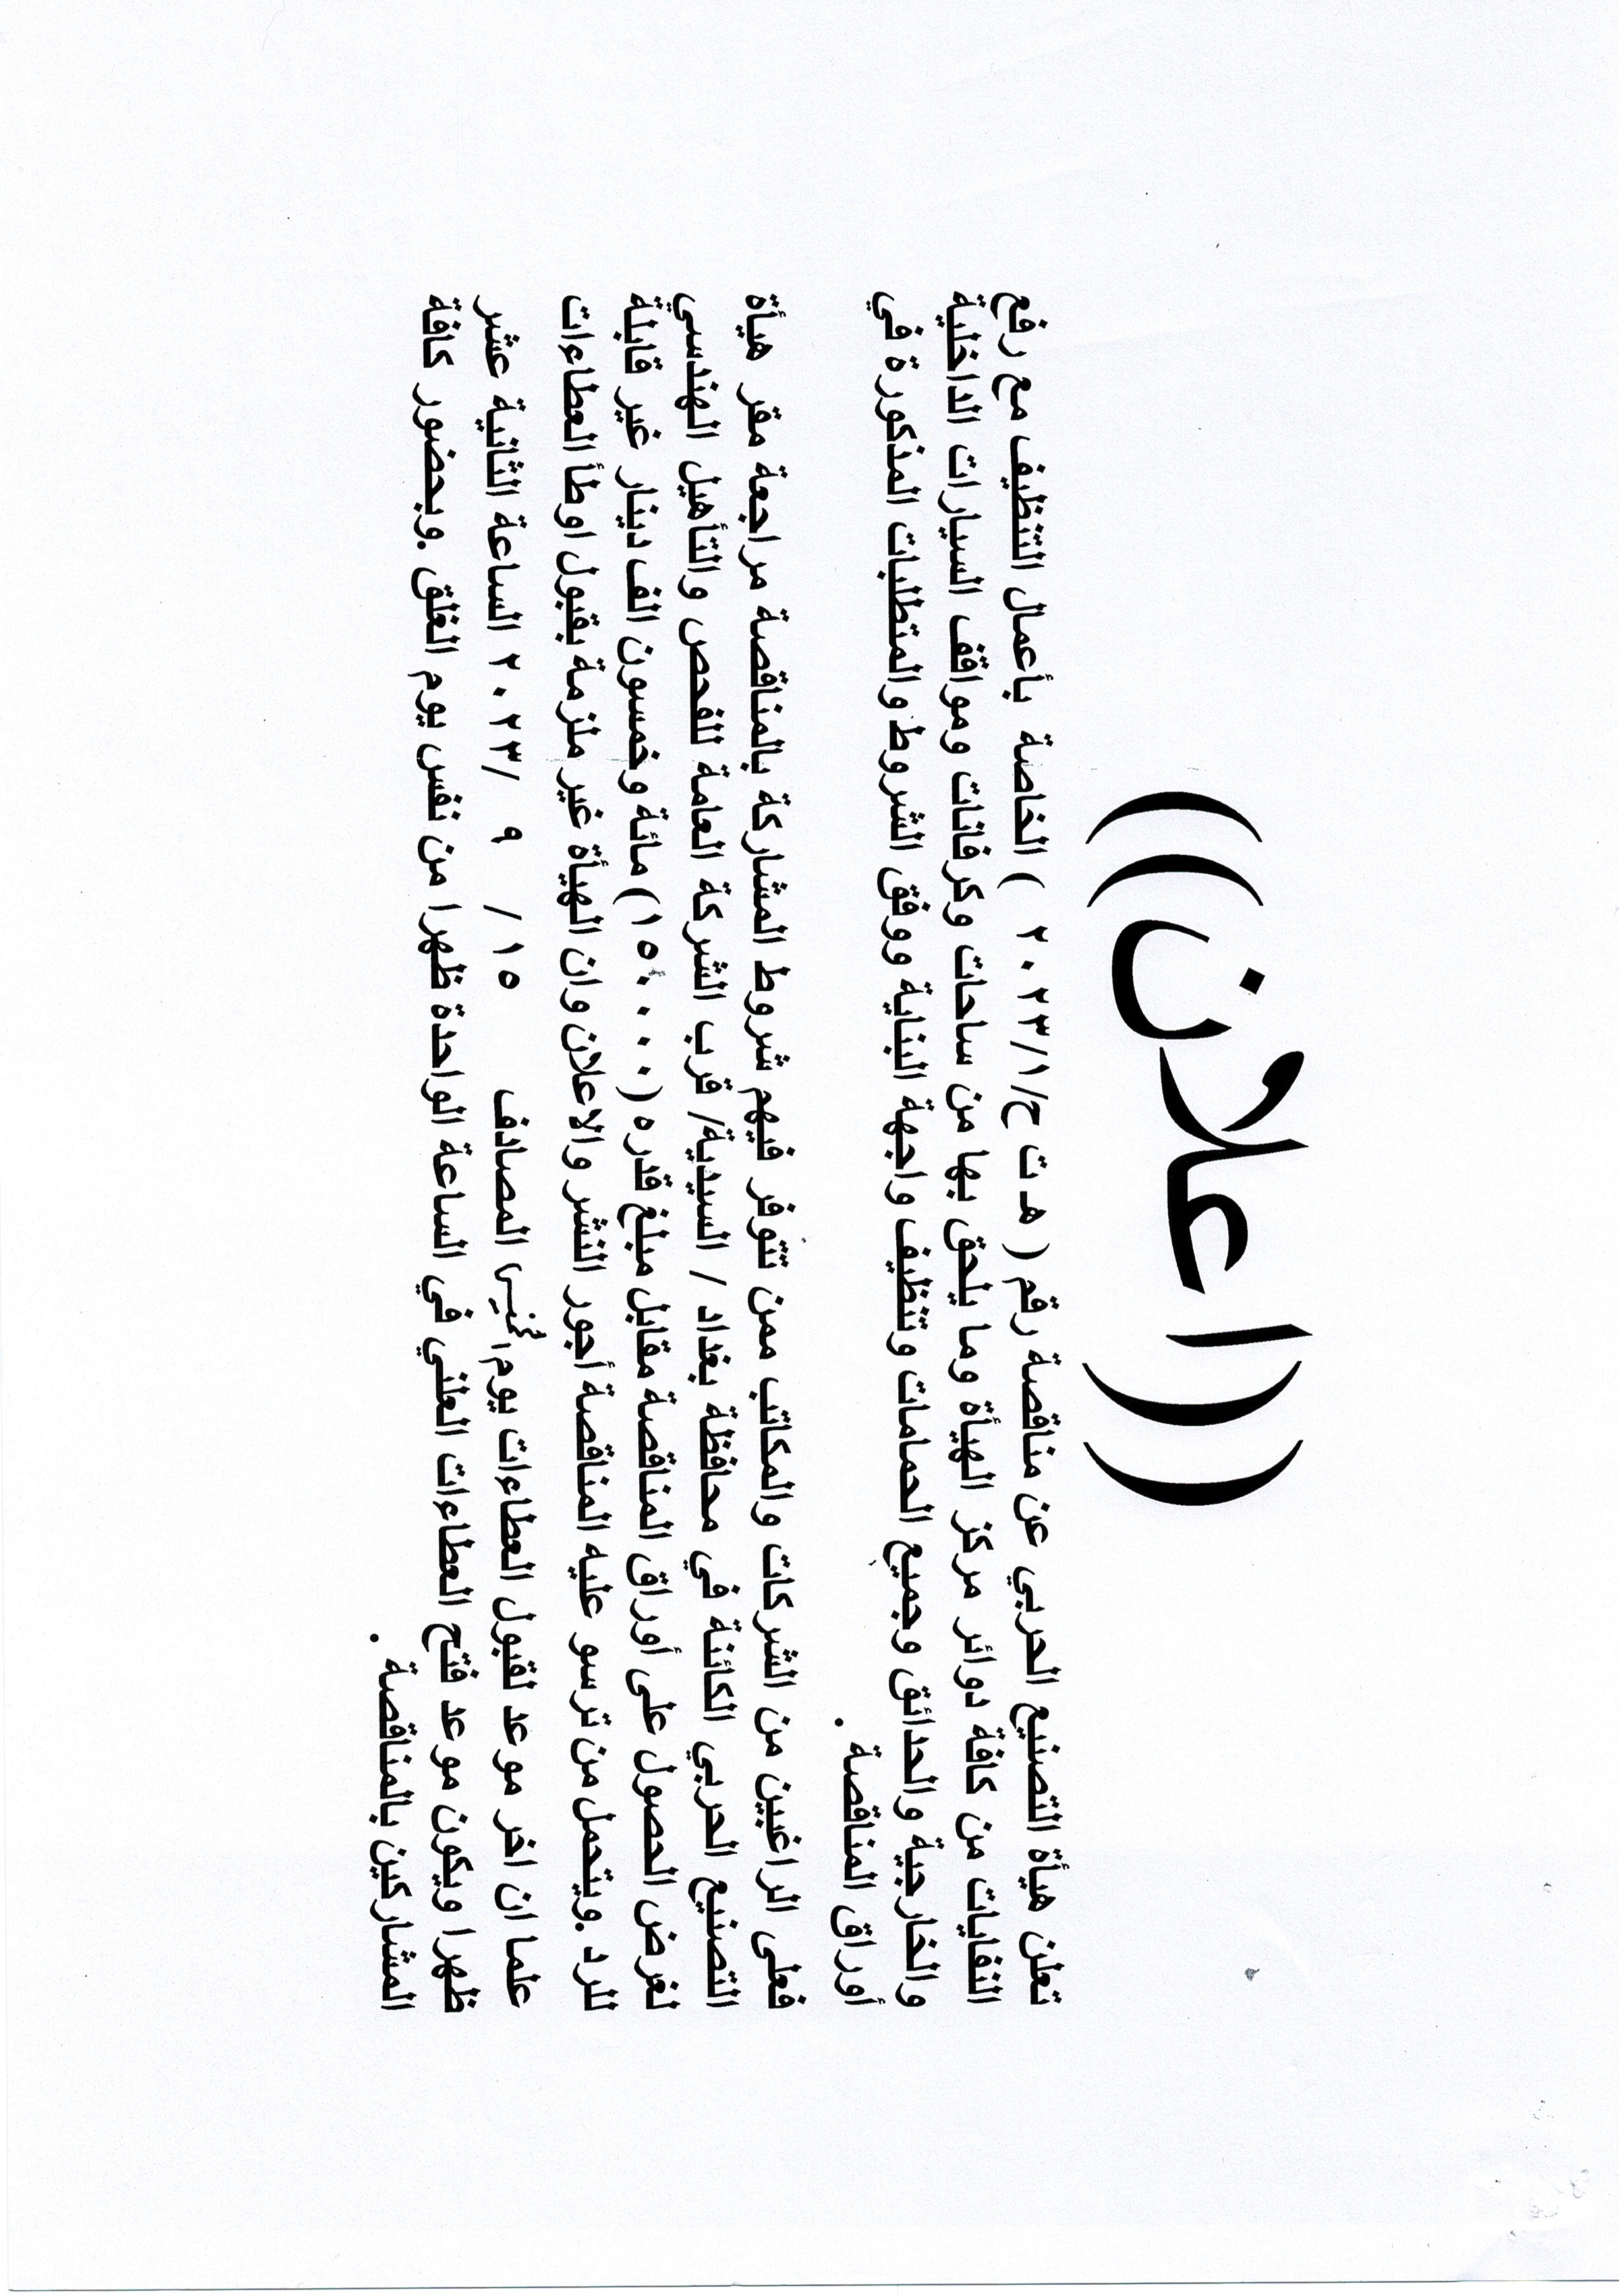 ((اعلان))
تعلن هيأة التصنيع الحربي عن مناقصة رقم ( هـ ت ح/٢٠٢٣/١ ) الخاصة بأعمال التنظيف مع رفع
النفايات من كافة دوائر مركز الهيأة وما يلحق بها من ساحات وكرفانات ومواقف السيارات الداخلية
والخارجية والحدائق وجميع الحمامات وتنظيف واجهة البناية ووفق الشروط والمتطلبات المذكورة في
أوراق المناقصة .
فعلى الراغبين من الشركات والمكاتب ممن تتوفر فيهم شروط المشاركة بالمناقصة مراجعة مقر هيأة
التصنيع الحربي الكائنة في محافظة بغداد / السيدية/ قرب الشركة العامة للفحص والتأهيل الهندسي
لغرض الحصول على أوراق المناقصة مقابل مبلغ قدره (١٥٠٠٠٠) مائة وخمسون الف دينار غير قابلة
للرد .ويتحمل من ترسو عليه المناقصة أجور النشر والاعلان وان الهيأة غير ملزمة بقبول اوطأ العطاءات
علما ان اخر موعد لقبول العطاءات يوم المصادف ١٥ / ٩ /٢٠٢٣ الساعة الثانية عشر
ظهرا ويكون موعد فتح العطاءات العلني في الساعة الواحدة ظهرا من نفس يوم الغلق .وبحضور كافة
المشاركين بالمناقصة .